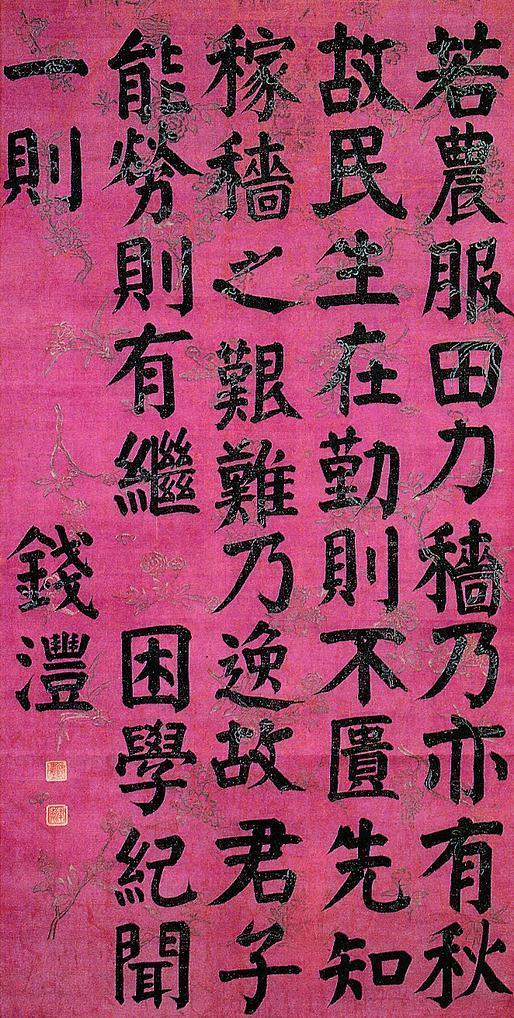 若農服田力穡乃亦有秋
故民生在勤則不匱先知
稼穡之艱難乃逸故君子
能勞則有繼 困學紀聞
一則 錢灃